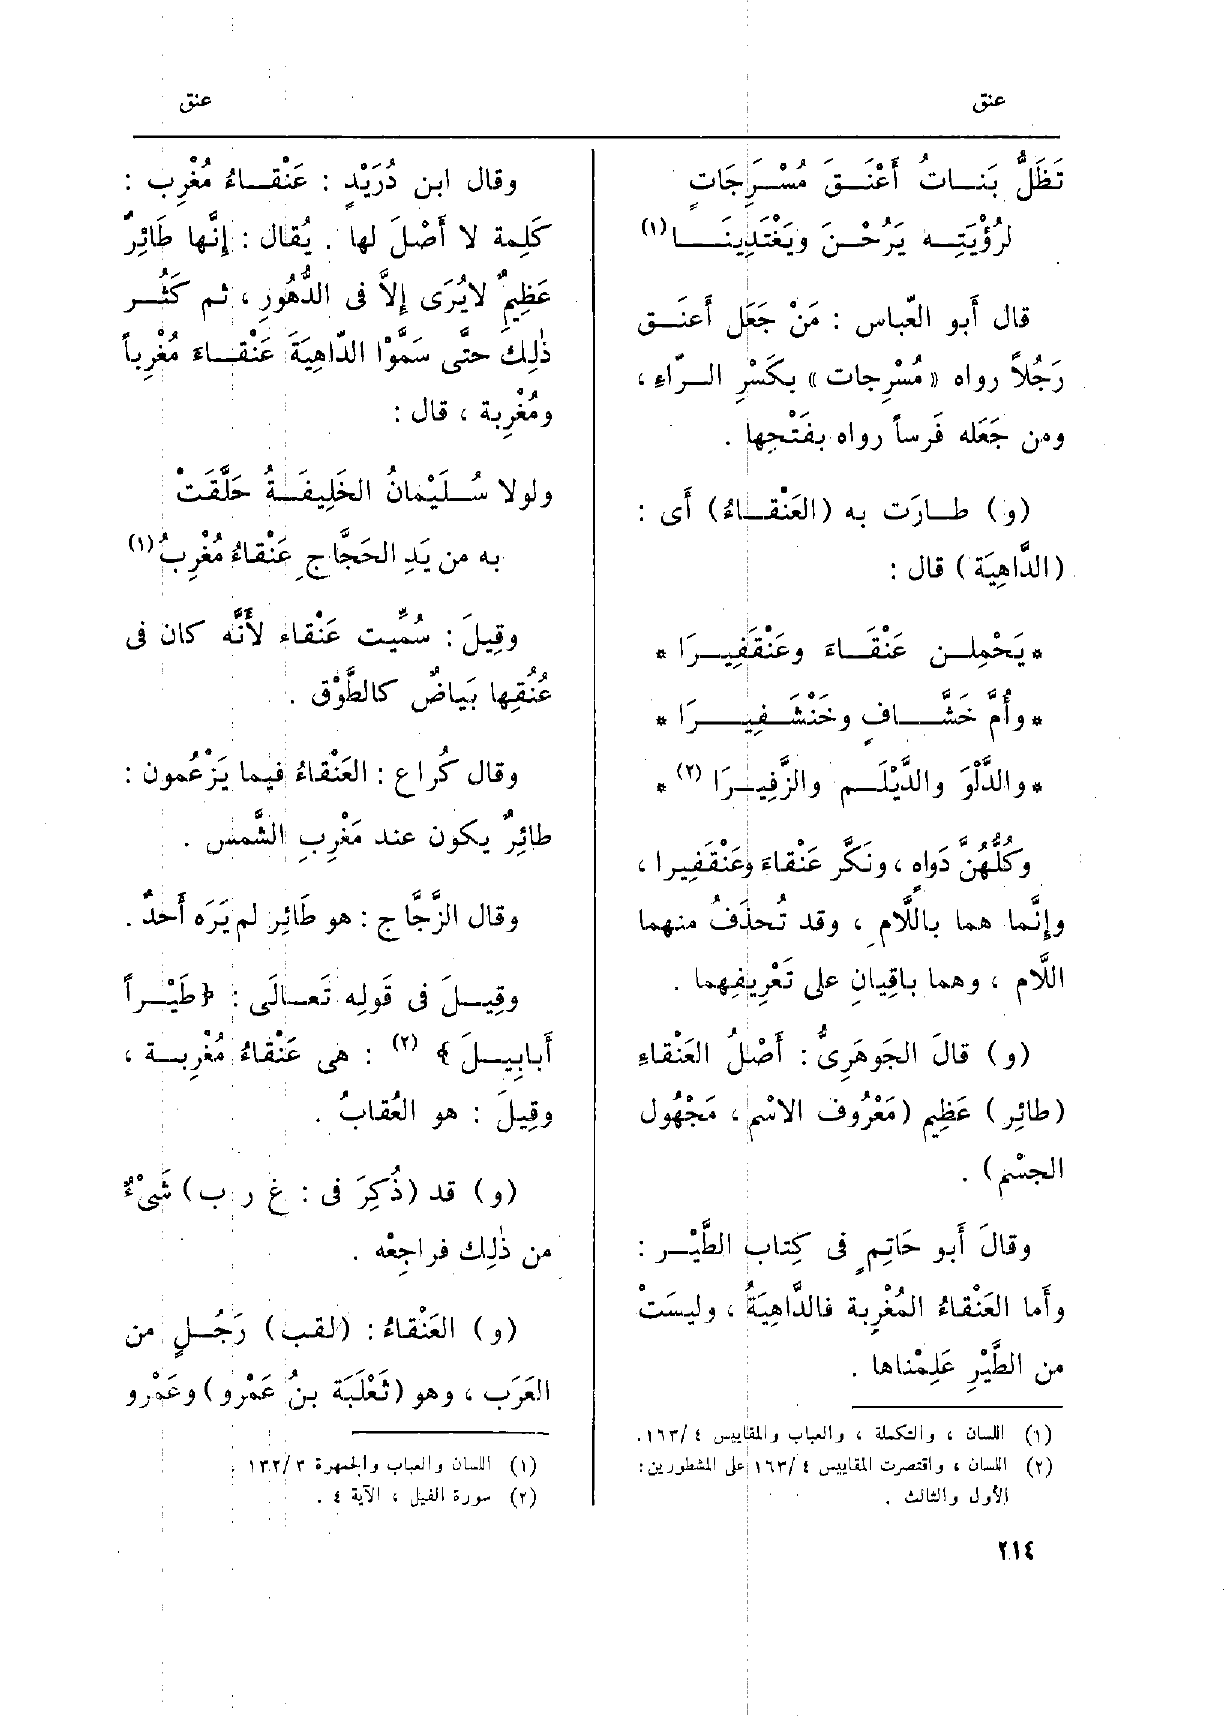 عنق
عنق
تَظَلُّ بَنَـاتُ أَعْنَـقَ مُسْـرَجَاتٍ
لِرُؤْيَتِـه يَرُحْـنَ ويَغْتَدِينَـا (١)
قال أَبو العّباس : مَنْ جَعَل أَعنَـق
رَجُلاً رواه « مُسْرِجات » بكَسْرِ الـرّاءِ ،
ومن جَعَله فَرساً رواه بفَتْحِها .
(و) طـارَت به (العَنْقـاءُ) أَى :
(الدَّاهِيَة) قال :
* يَحْمِلـن عَنْقَـاءَ وعَنْقَفِيـرَا *
* وأُمَّ خَشَّـافٍ وخَنْشَـفِيـرَا *
* والدَّلْوَ والدَّيْلَـم والزَّفِيـرَا (٢) *
وكُلُّهُنَّ دَواهٍ ، ونَكَّر عَنْقاءَ وعَنْقَفيرا ،
وإِنَّما هما باللَّامِ ، وقد تُحذَفُ منهما
اللَّام ، وهما باقِيانِ على تَعْرِيفِهما .
(و) قالَ الجَوهَرِىُّ : أَصْلُ العَنْقاءِ
(طائِر) عَظِيم (مَعْرُوف الاسْم ، مَجْهُول
الجسْم) .
وقالَ أَبو حَاتِمٍ فى كِتاب الطَّيْـر :
وأَما العَنْقاءُ المُغْرِبة فالدَّاهِيَةُ ، وليسَتْ
من الطَّيْرِ عَلِمْناها .
(١) اللسان ، والتكملة ، والعباب والمقاييس ٤ / ١٦٣ .
(٢) اللسان ، واقتصرت المقاييس ٤ / ١٦٣ على المشطورين :
الأول والثالث .
وقال ابن دُرَيْدٍ : عَنْقـاءُ مُغْرِب :
كَلِمة لا أَصْلَ لها . يُقال : إِنَّها طَائِرٌ
عَظِيمٌ لايُرَى إِلاَّ فى الدُّهُورِ ، ثم كَثُـر
ذٰلِك حتَّى سَمَّوْا الدّاهِيَةَ عَنْقـاءَ مُغْرِباً
ومُغْرِبة ، قال :
ولولا سُـلَيْمانُ الخَلِيفَـةُ حَلَّقَتْ
به من يَدِ الحَجَّاجِ عَنْقاءُ مُغْرِبُ (١)
وقِيلَ : سُمِّيت عَنْقاء لأَنَّه كان فى
عُنُقِها بَياضٌ كالطَّوْق .
وقال كُراع : العَنْقاءُ فيما يَزْعُمون :
طائِرٌ يكون عند مَغْرِبِ الشَّمس .
وقال الزَّجَّاج : هو طَائِر لم يَرَه أَحدٌ .
وقِيـلَ فى قَولِه تَعـالَى : ﴿ طَيْـراً
أَبابِيـلَ ﴾ (٢) : هى عَنْقاءُ مُغْرِبـة ،
وقِيلَ : هو العُقابُ .
(و) قد (ذُكِرَ فى : غ ر ب) شَىْءٌ
من ذٰلِك فراجِعْه .
(و) العَنْقاءُ : (لقب) رَجُـلٍ من
العَرَب ، وهو (ثَعْلَبَة بنُ عَمْرو) وعَمْرو
(١) اللسان والعباب والجمهرة ٣ / ١٣٢ .
(٢) سورة الفيل ، الآية ٤ .
٢١٤